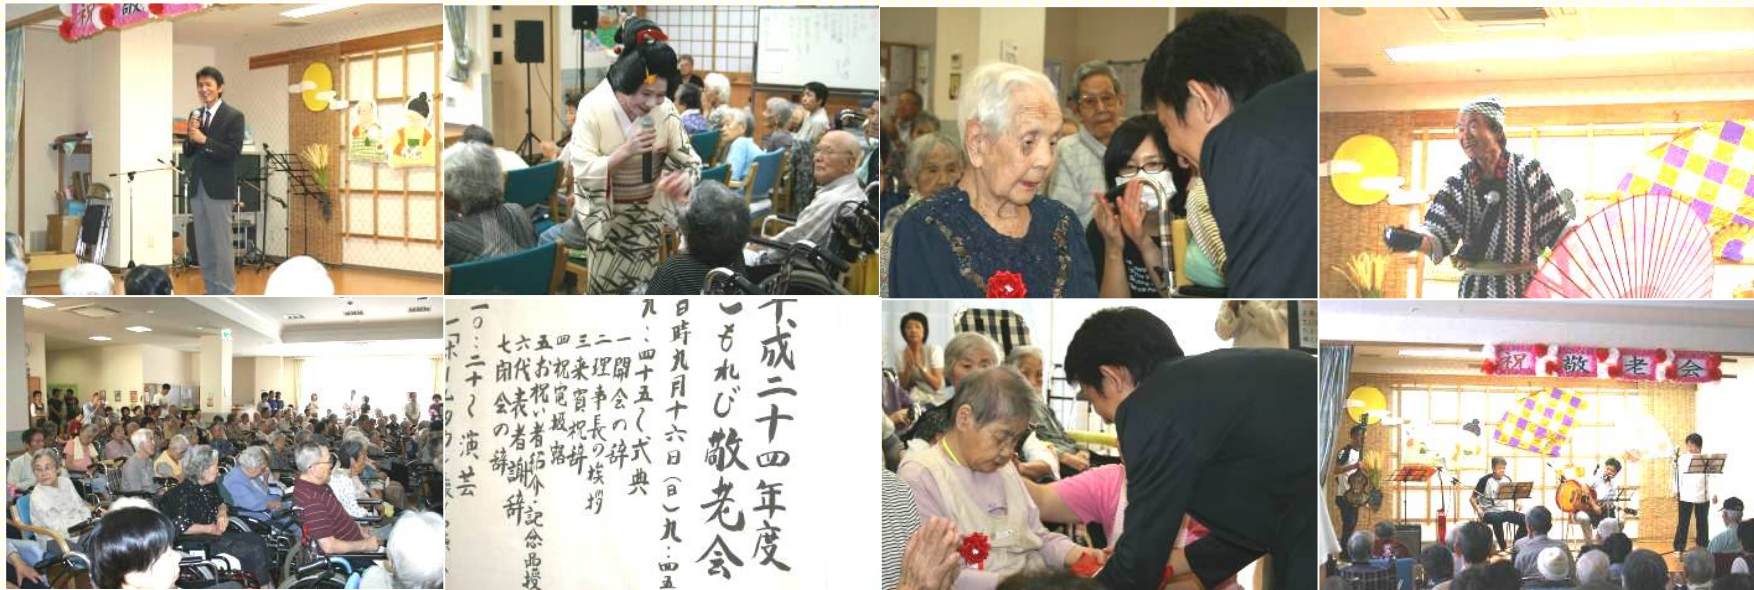 祝 敬
平成二十四年度
こもれび敬老会
日時九月十六日(日)九:四五
九:四十五〜式典
一開会の辞
二理事長の挨拶
三来賓祝辞
四祝電披露
五お祝い者紹介・記念品授
六代表者謝辞
七閉会の辞
一〇:二十〜演芸
祝 敬老会